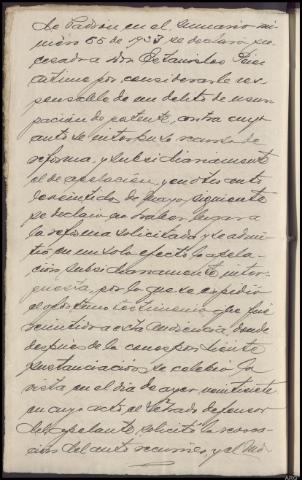 de Padrón en el sumario nú-
mero 55 de 1923 se declaró pro-
cesado a don Estanislao Pérez
Artime por considerarle res-
ponsable de un delito de usur-
pación de patente, contra cuyo
auto se interpuso recurso de
reforma, y subsidiariamente
el de apelación, y en otro auto
de veintidos de mayo siguiente
se declaró no haber lugar a
la reforma solicitada y se admi-
tió en un solo efecto la apela-
ción subsidiariamente inter-
puesta, por lo que se expidió
el oportuno testimonio que fue
remitido a esta Audiencia, donde
después de la correspondiente
sustanciación se celebró la
vista en el día de ayer, veintisiete
en cuyo acto el Letrado defensor
del apelante solicitó la revoca-
ción del auto recurrido, y el Mi-